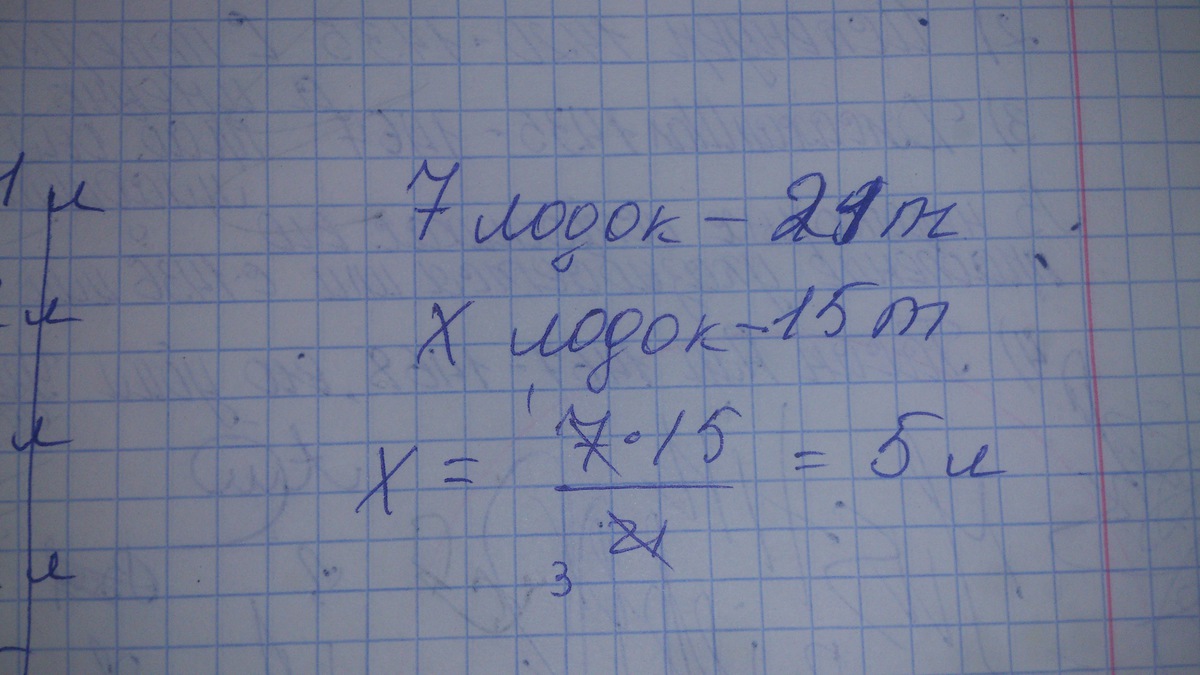 7 лодок – 21 т
x лодок – 15 т
x = 7·15 / 21 = 5 л
1
3